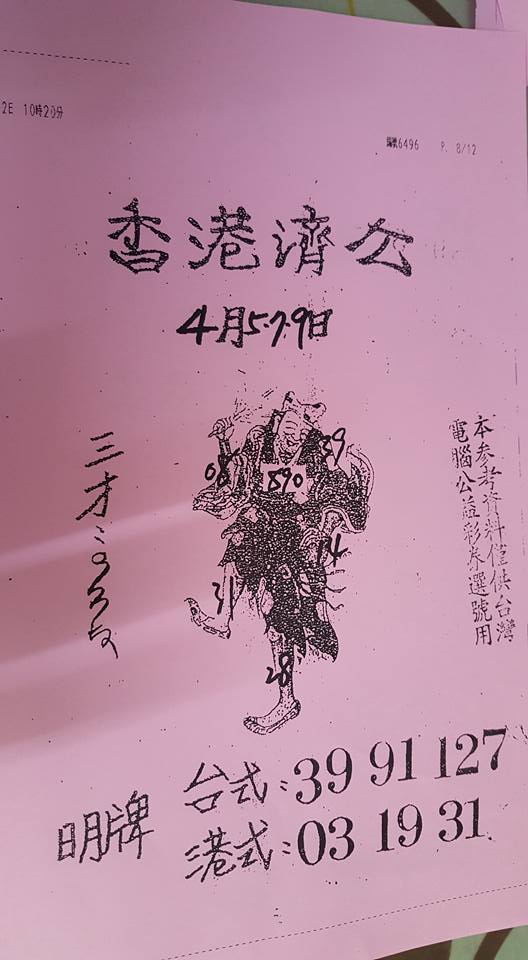 2E 10時20分
編號6496 P. 8/12
香港濟公
4月5.7.9日
39
890
14
31
28
三才:
本参考資料僅供台灣
電腦公益彩券選號用
明牌
台式:39 91 127
港式:03 19 31